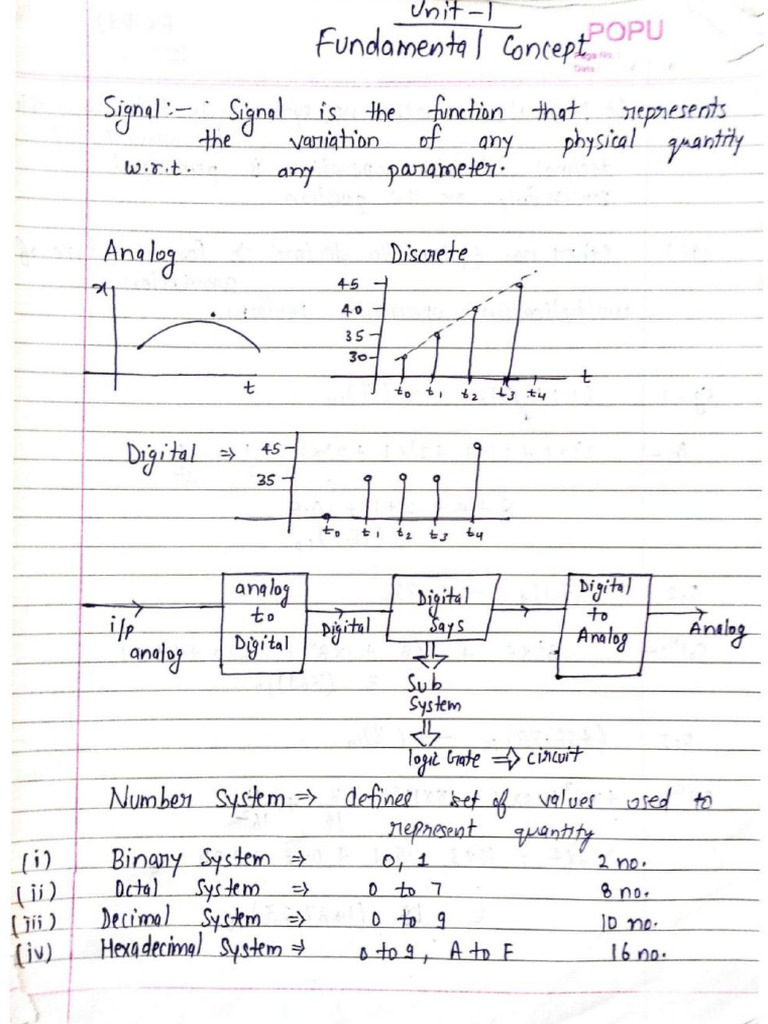 Unit-1
Fundamental Concept
POPU
Page No.
Date
Signal:- Signal is the function that represents
the variation of any physical quantity
w.r.t. any parameter.
Analog
Discrete
x
t
45
40
35
30
t0 t1 t2 t3 t4
t
Digital ⇒
45
35
t0 t1 t2 t3 t4
i/p
analog
analog
to
Digital
Digital
Digital
Says
Digital
to
Analog
Analog
Sub
System
logic Gate ⇒ circuit
Number System ⇒ defines set of values used to
represent quantity
(i) Binary System ⇒ 0, 1 2 no.
(ii) Octal System ⇒ 0 to 7 8 no.
(iii) Decimal System ⇒ 0 to 9 10 no.
(iv) Hexadecimal System ⇒ 0 to 9, A to F 16 no.